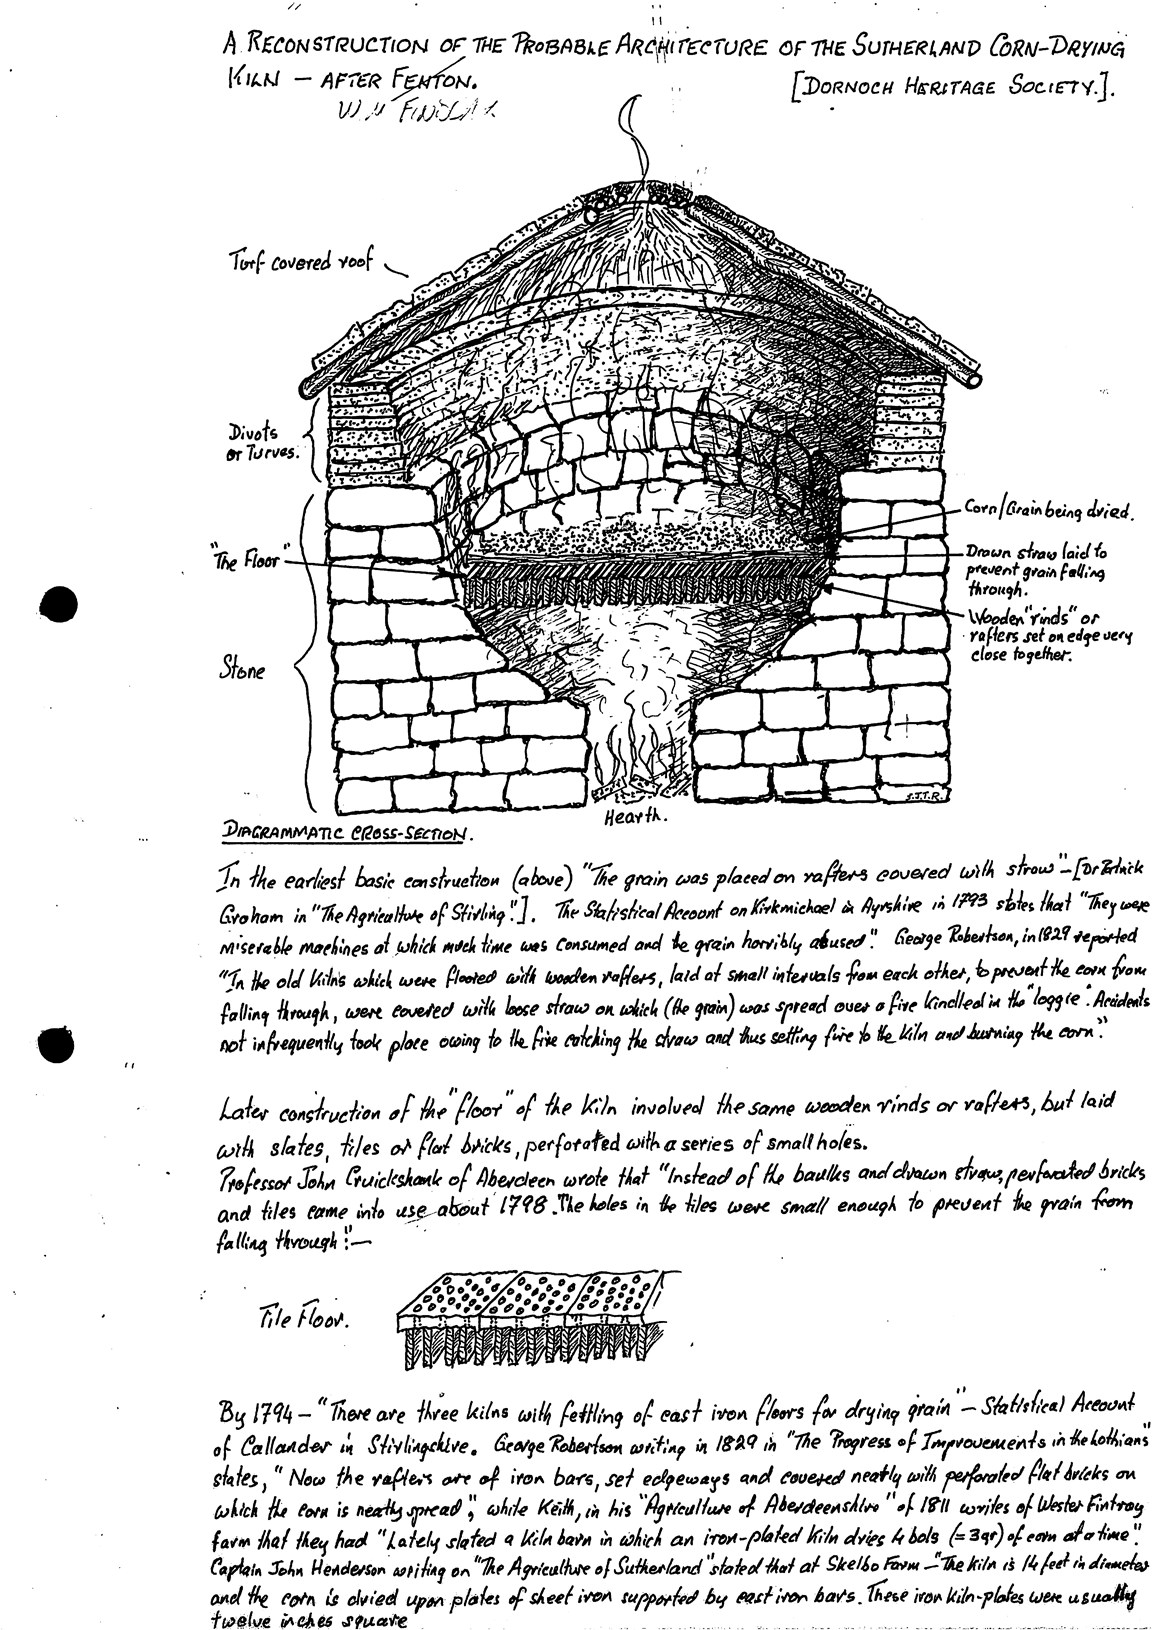 A RECONSTRUCTION OF THE PROBABLE ARCHITECTURE OF THE SUTHERLAND CORN-DRYING
KILN — AFTER FENTON. [DORNOCH HERITAGE SOCIETY.].
W M FINDLAY
Turf covered roof
Divots
or Turves.
Corn/Grain being dried.
"The Floor"
Drawn straw laid to
prevent grain falling
through.
Wooden "rinds" or
rafters set on edge very
close together.
Stone
J.J.R.
Hearth.
DIAGRAMMATIC CROSS-SECTION.
In the earliest basic construction (above) "The grain was placed on rafters covered with straw" – [Dr Patrick
Graham in "The Agriculture of Stirling".]. The Statistical Account on Kirkmichael in Ayrshire in 1793 states that "They were
miserable machines at which much time was consumed and the grain horribly abused". George Robertson, in 1829 reported
"In the old kilns which were floored with wooden rafters, laid at small intervals from each other, to prevent the corn from
falling through, were covered with loose straw on which (the grain) was spread over a fire kindled in the "loggie". Accidents
not infrequently took place owing to the fire catching the straw and thus setting fire to the kiln and burning the corn."
Later construction of the "floor" of the kiln involved the same wooden rinds or rafters, but laid
with slates, tiles or flat bricks, perforated with a series of small holes.
Professor John Cruickshank of Aberdeen wrote that "Instead of the baulks and drawn straw, perforated bricks
and tiles came into use about 1798. The holes in the tiles were small enough to prevent the grain from
falling through":—
Tile Floor.
By 1794 – "There are three kilns with fettling of cast iron floors for drying grain" – Statistical Account
of Callander in Stirlingshire. George Robertson writing in 1829 in "The Progress of Improvements in the Lothians"
states, "Now the rafters are of iron bars, set edgeways and covered neatly with perforated flat bricks on
which the corn is neatly spread", while Keith, in his "Agriculture of Aberdeenshire" of 1811 writes of Wester Fintray
farm that they had "Lately slated a kiln barn in which an iron-plated kiln dries 4 bols (=3qr) of corn at a time".
Captain John Henderson writing on "The Agriculture of Sutherland" stated that at Skelbo Farm – "The kiln is 14 feet in diameter
and the corn is dried upon plates of sheet iron supported by cast iron bars. These iron kiln-plates were usually
twelve inches square